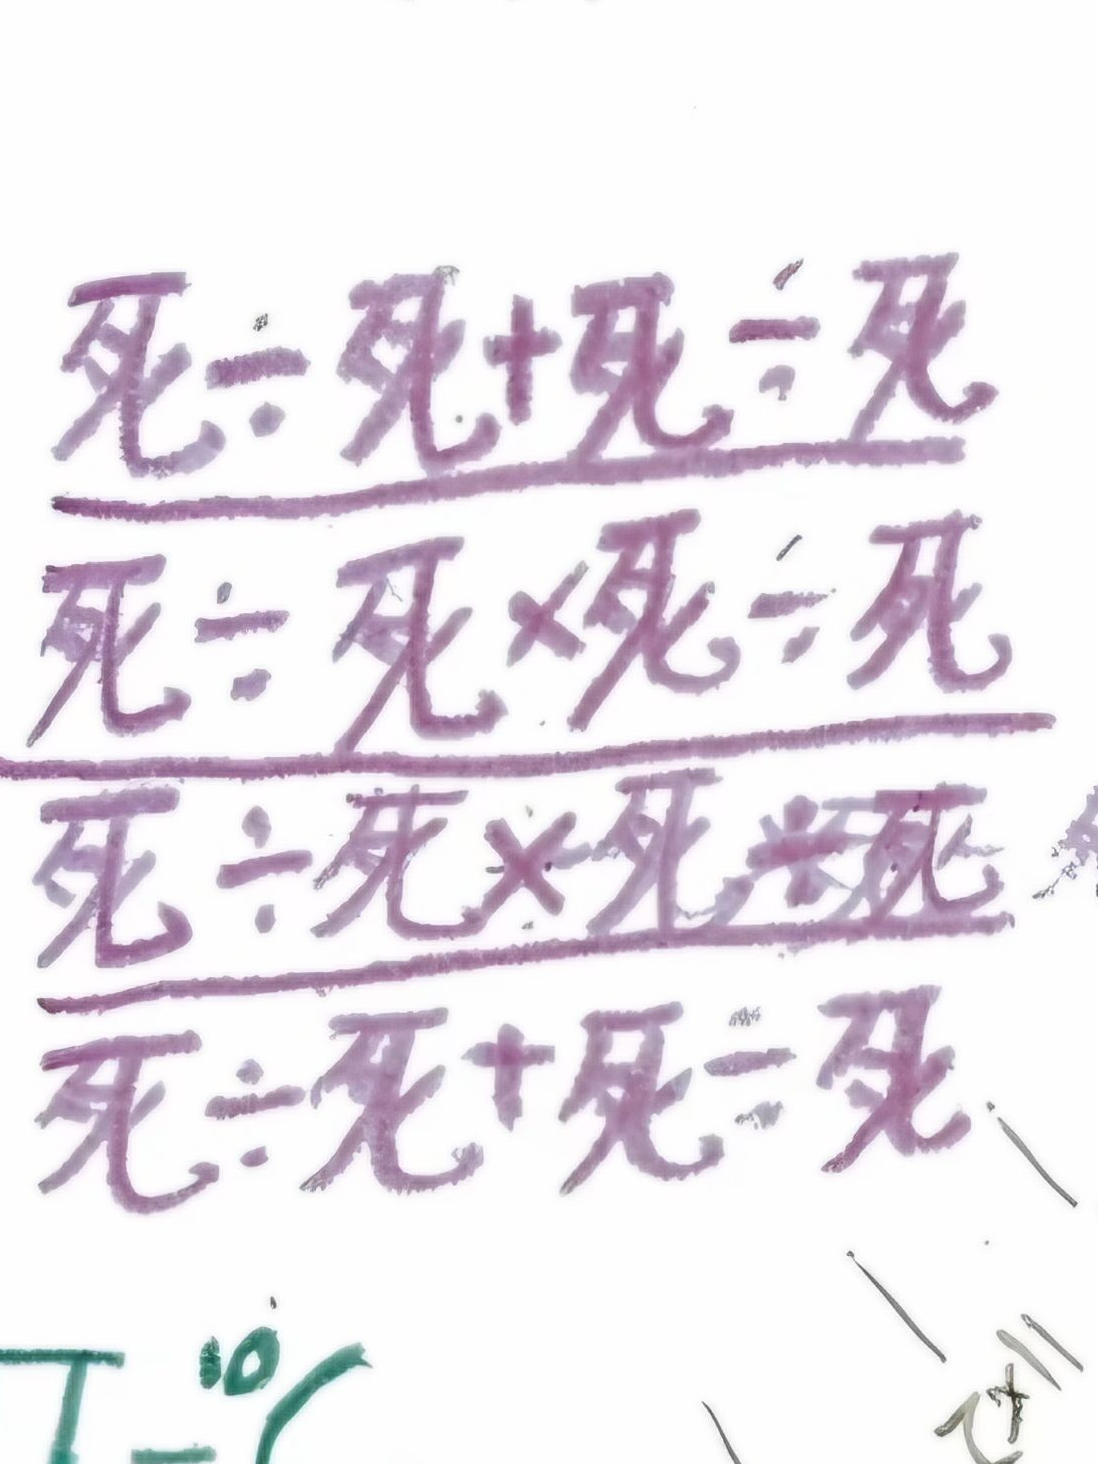 死÷死+死÷死
死÷死×死÷死
死÷死×死÷死
死÷死+死÷死